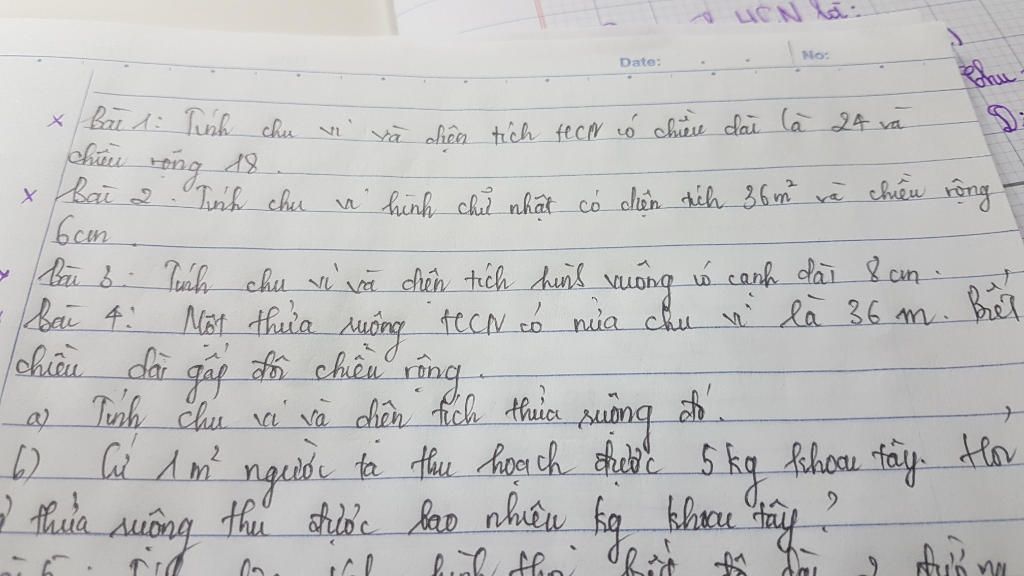 HCN là:
Date: No:
Bài 1: Tính chu vi và diện tích HCN có chiều dài là 24 và
chiều rộng 18.
Bài 2. Tính chu vi hình chữ nhật có diện tích 36m² và chiều rộng
6cm.
Bài 3: Tính chu vi và diện tích hình vuông có cạnh dài 8cm.
Bài 4: Một thửa ruộng HCN có nửa chu vi là 36 m. Biết
chiều dài gấp đôi chiều rộng.
a) Tính chu vi và diện tích thửa ruộng đó.
b) Cứ 1m² người ta thu hoạch được 5kg khoai tây. Hỏi
thửa ruộng thu được bao nhiêu kg khoai tây?